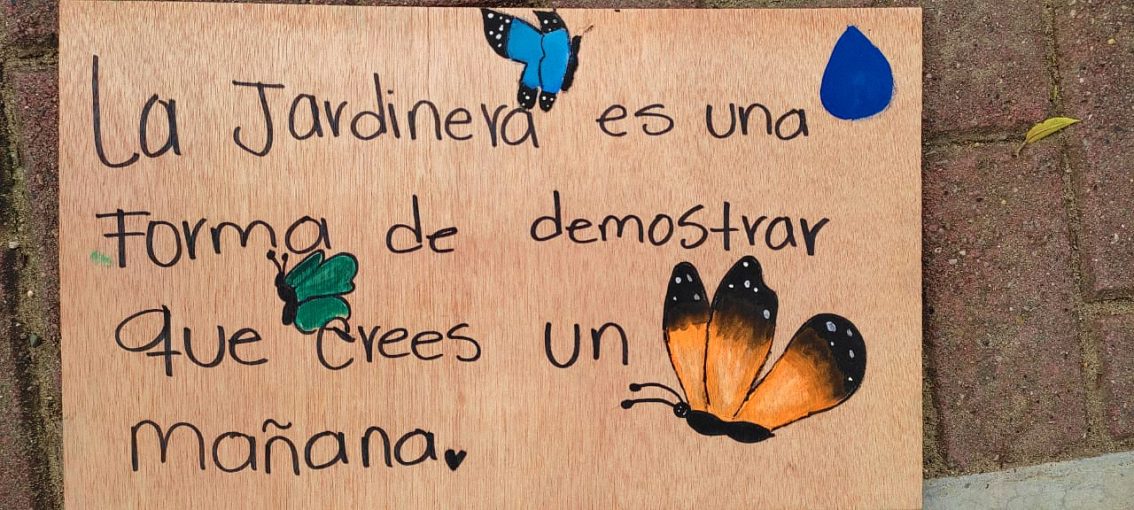 La Jardinera es una
Forma de demostrar
que crees un
mañana.